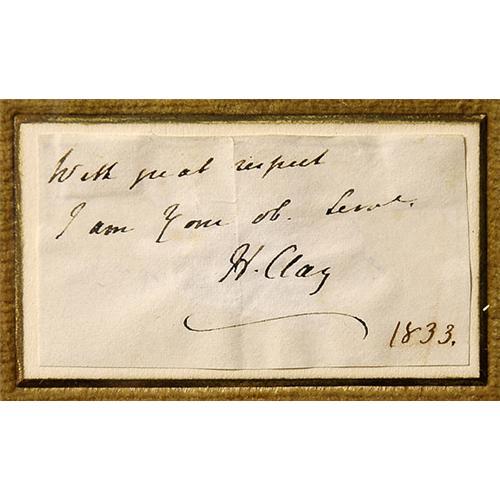 With great respect
I am Your ob. Servt.
H. Clay
1833.